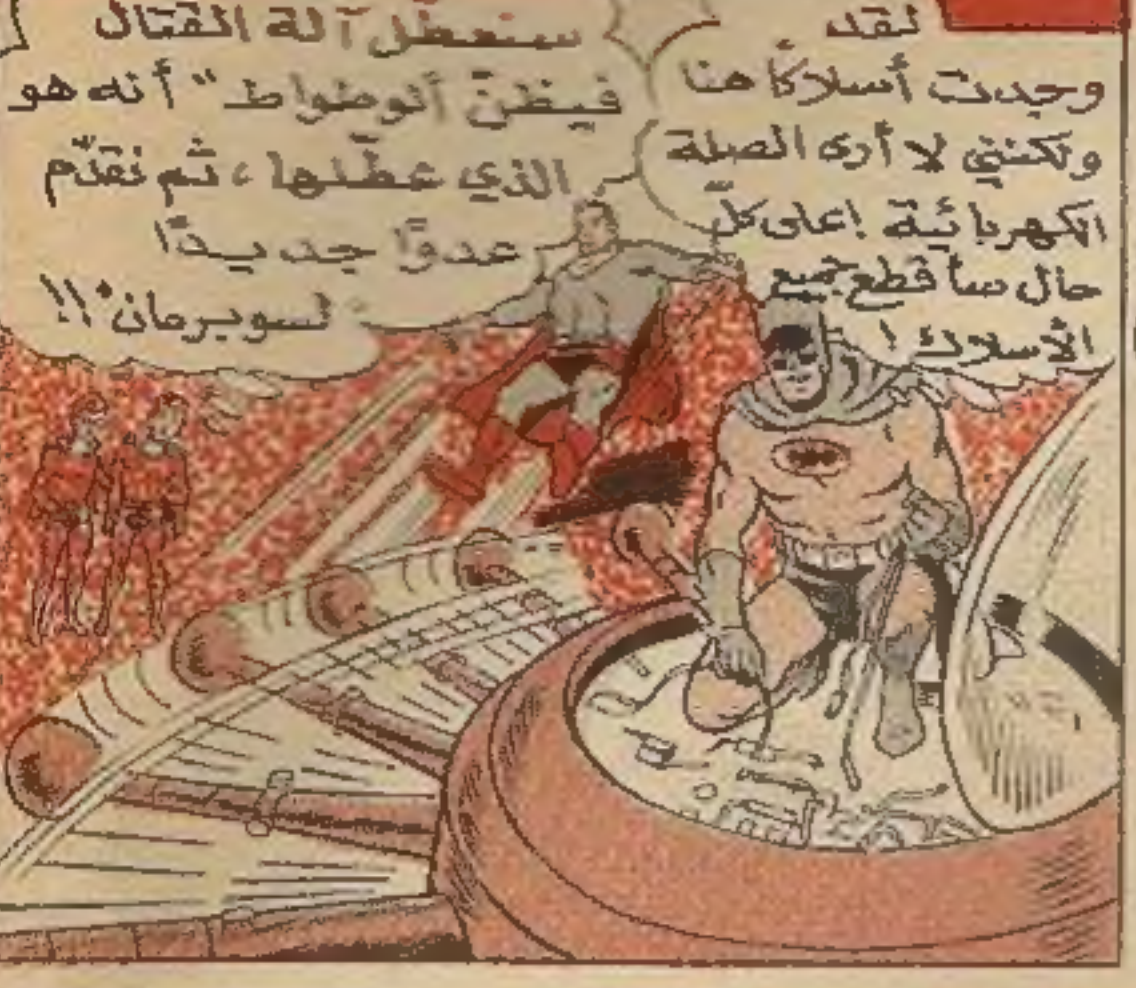 لقد
وجدت أسلاكًا هنا
ولكنني لا أرى الصلة
الكهربائية! على كلّ
حال سأقطع جميع
الأسلاك!
سنعطّل آلة القتال
فيظنّ الوطواط" أنه هو
الذي عطّلها، ثم نقدّم
عدوًّا جديدًا
لسوبرمان"!!